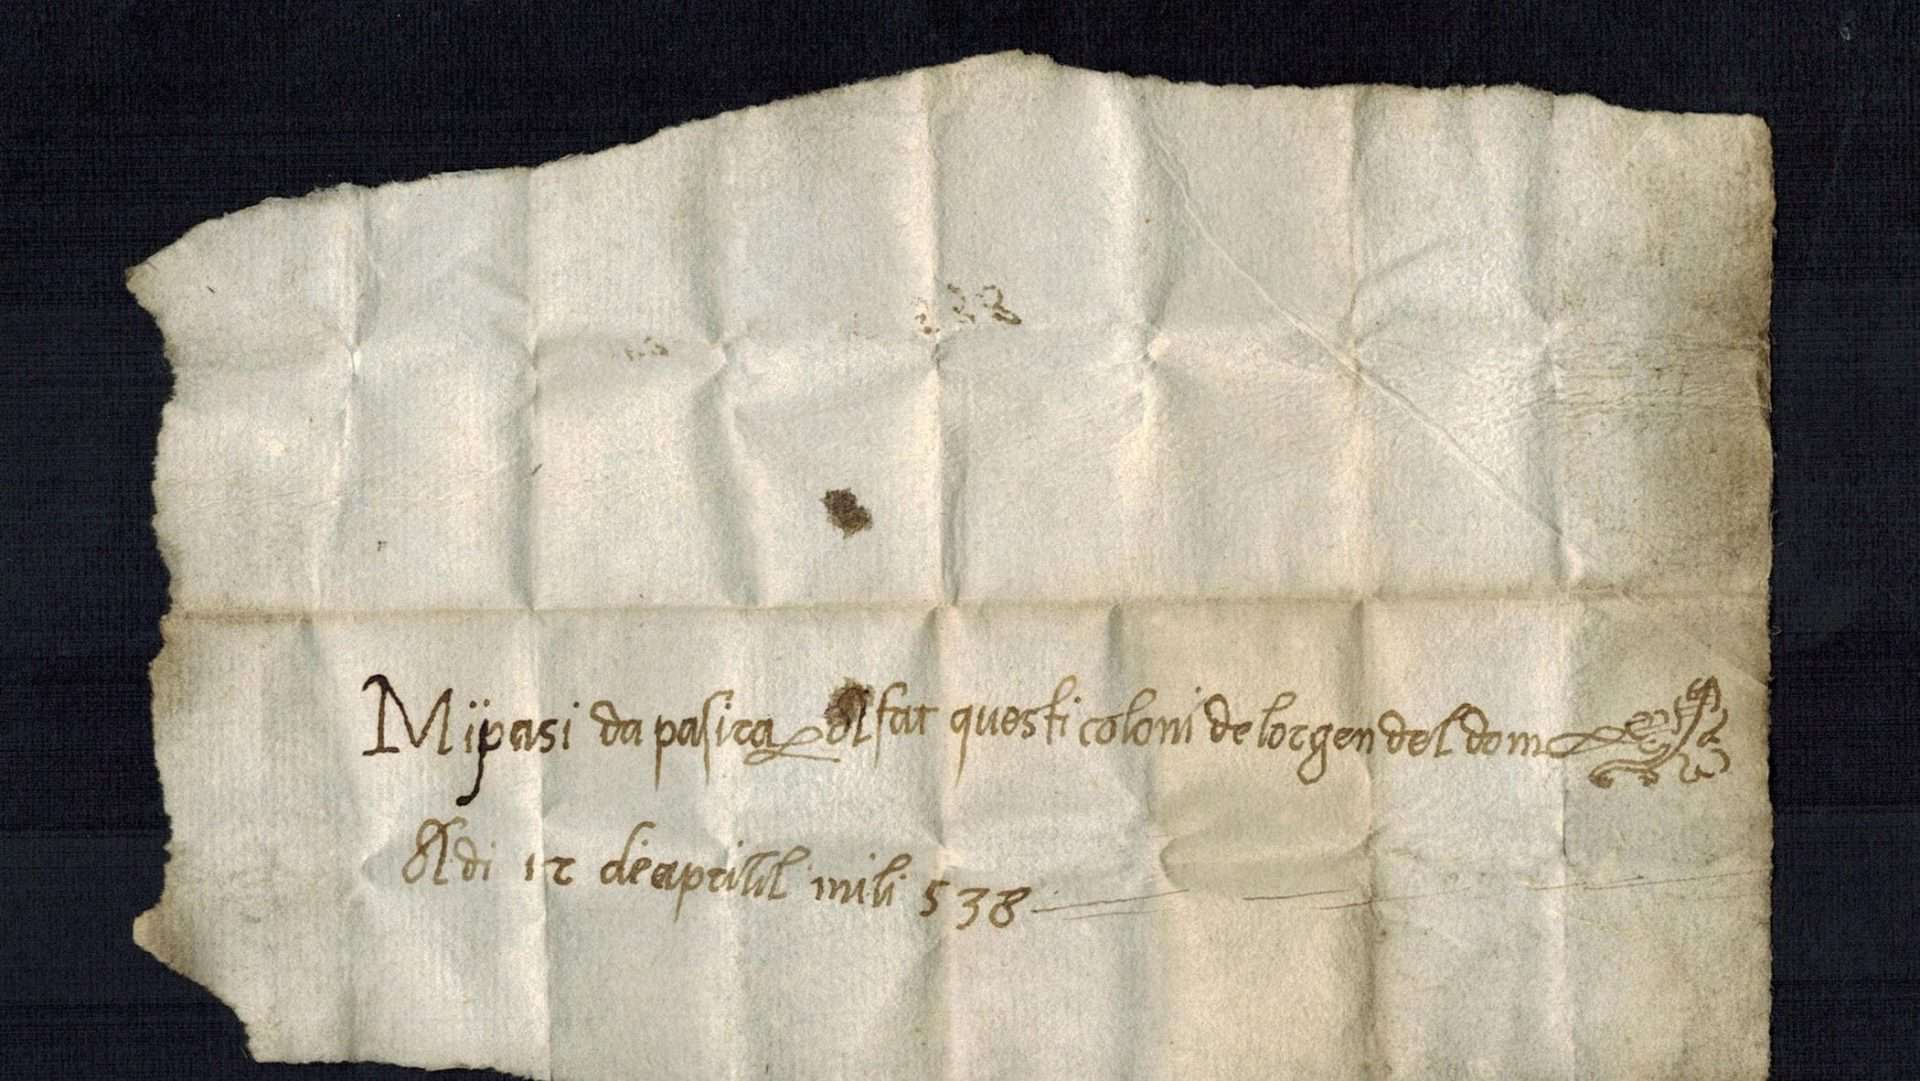 Mi ijpasi da pasira A far questi coloni de lorgen del dom
A di 12 de aprillil mili 538